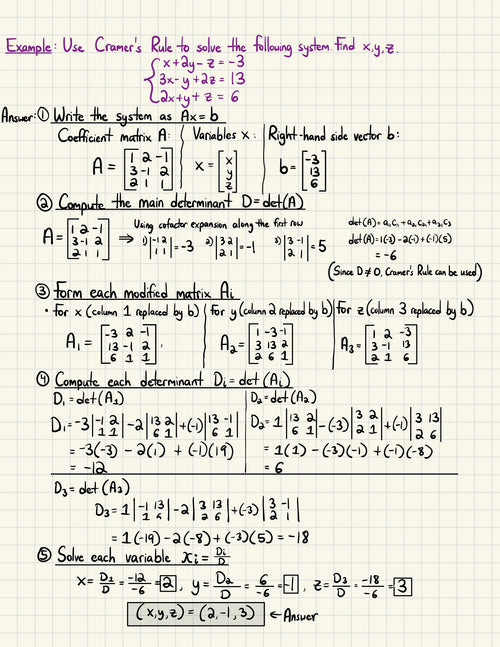 Example: Use Cramer's Rule to solve the following system. Find x,y,z.
x+2y-z=-3
3x-y+2z=13
2x+y+z=6
Answer: ① Write the system as Ax=b
Coefficient matrix A: Variables x: Right-hand side vector b:
A = [1 2 -1; 3 -1 2; 2 1 1] x = [x; y; z] b = [-3; 13; 6]
② Compute the main determinant D=det(A)
A = [1 2 -1; 3 -1 2; 2 1 1] ⇒ Using cofactor expansion along the first row
1) |-1 2; 1 1| = -3 2) |3 2; 2 1| = -1 3) |3 -1; 2 1| = 5
det(A)=a₁C₁+a₂C₂+a₃C₃
det(A)=1(-3)-2(-1)+(-1)(5)
= -6
(Since D≠0, Cramer's Rule can be used)
③ Form each modified matrix Ai
• for x (column 1 replaced by b) for y (column 2 replaced by b) for z (column 3 replaced by b)
A₁ = [-3 2 -1; 13 -1 2; 6 1 1] A₂ = [1 -3 -1; 3 13 2; 2 6 1] A₃ = [1 2 -3; 3 -1 13; 2 1 6]
④ Compute each determinant Di=det(Ai)
D₁=det(A₁)
D₁=-3|-1 2; 1 1| -2|13 2; 6 1| +(-1)|13 -1; 6 1|
= -3(-3) -2(1) + (-1)(19)
= -12
D₂=det(A₂)
D₂=1|13 2; 6 1| -(-3)|3 2; 2 1| +(-1)|3 13; 2 6|
= 1(1) -(-3)(-1) +(-1)(-8)
= 6
D₃=det(A₃)
D₃=1|-1 13; 1 6| -2|3 13; 2 6| +(-3)|3 -1; 2 1|
= 1(-19) -2(-8) +(-3)(5) = -18
⑤ Solve each variable xi = Di/D
x= D₁/D = -12/-6 = 2, y= D₂/D = 6/-6 = -1, z= D₃/D = -18/-6 = 3
(x,y,z) = (2,-1,3) ← Answer